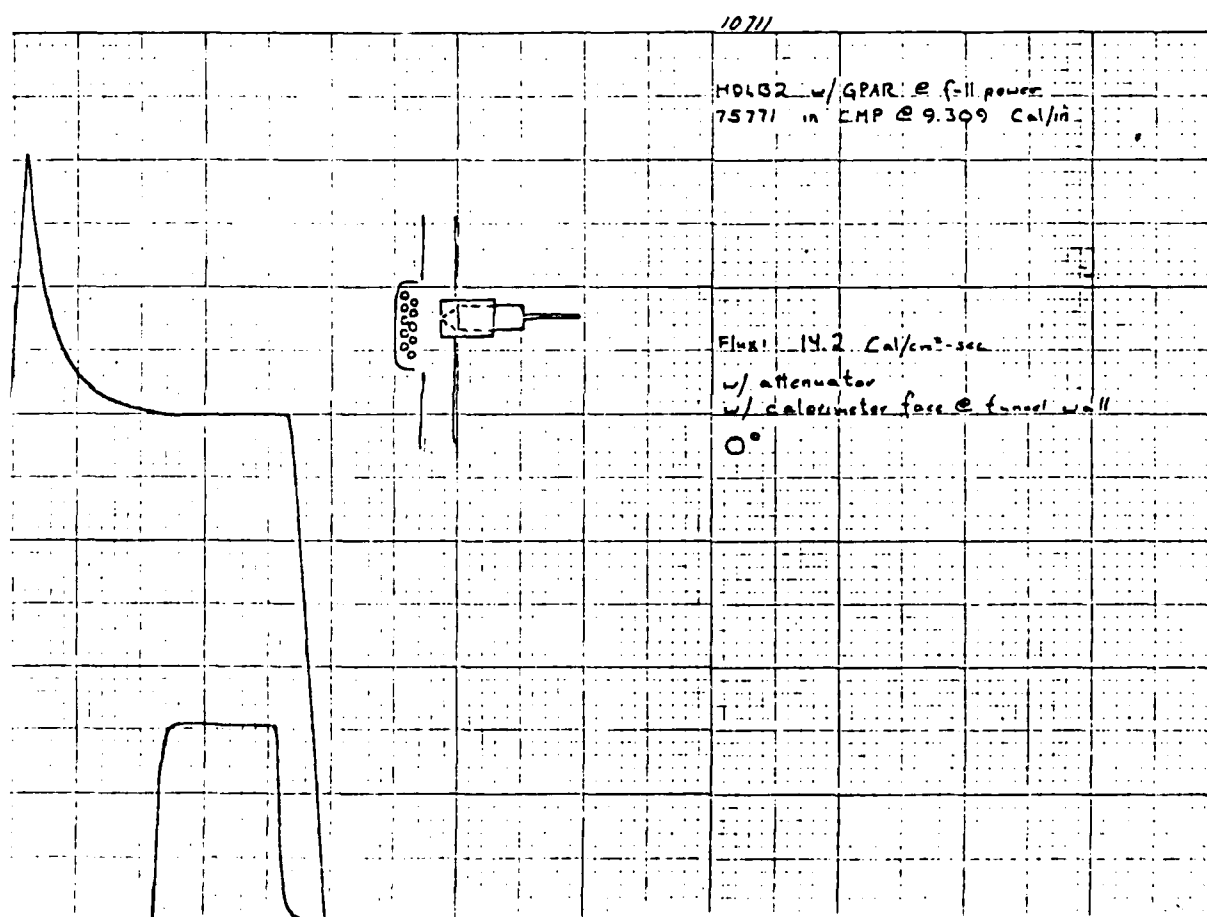 10711
HDLB2 w/ GPAR @ full power
75771 in CMP @ 9.309 Cal/in
Flux: 14.2 Cal/cm²-sec
w/ attenuator
w/ calorimeter face @ tunnel wall
0°